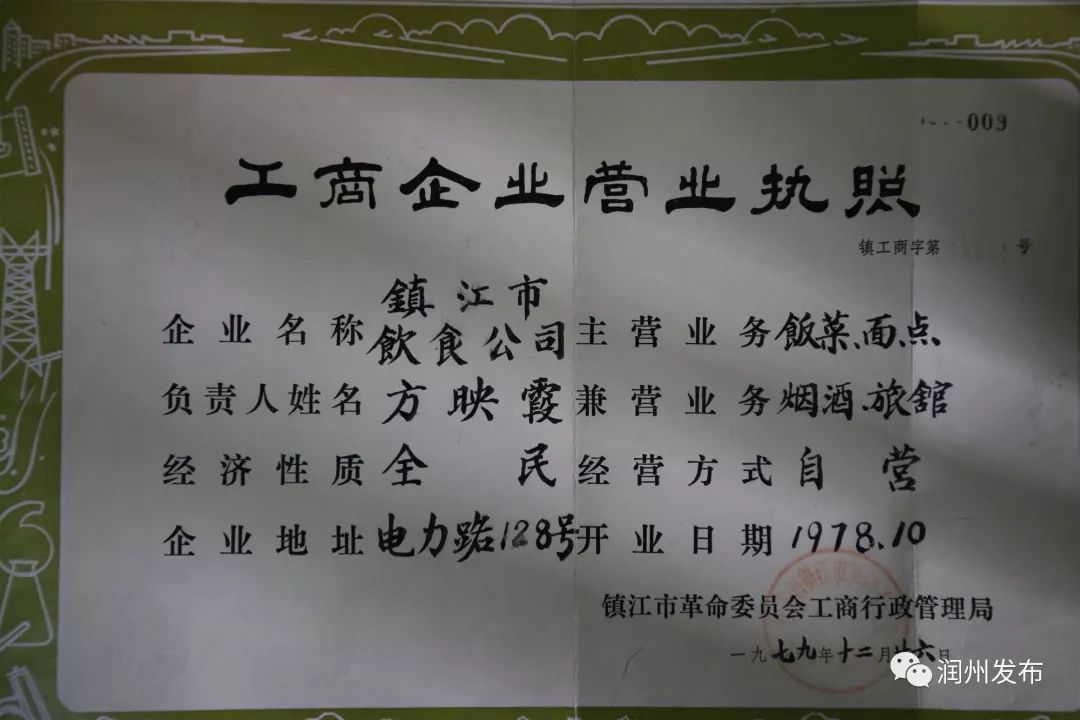 009
工商企业营业执照
镇工商字第 号
企业名称 鎮江市飲食公司 主营业务 飯菜、面点
负责人姓名 方映霞 兼营业务 烟酒、旅舘
经济性质 全民 经营方式 自营
企业地址 电力路128号 开业日期 1978.10
镇江市革命委员会工商行政管理局
一九七九年十二月廿六日
润州发布